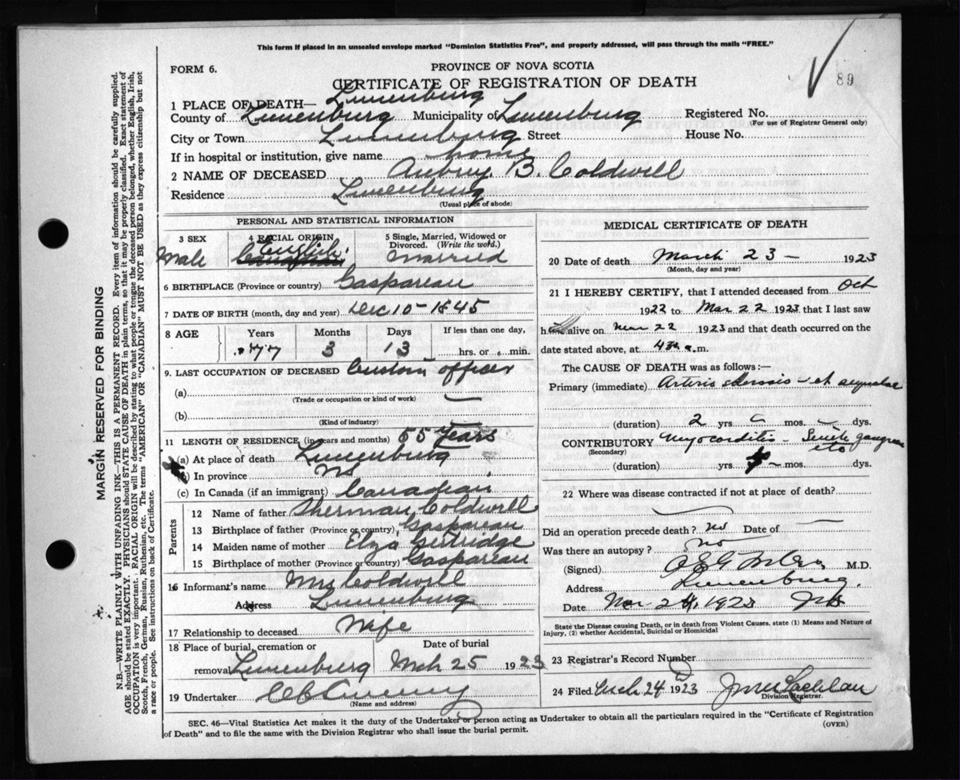 This form if placed in an unsealed envelope marked "Dominion Statistics Free", and properly addressed, will pass through the mails "FREE."
FORM 6.
PROVINCE OF NOVA SCOTIA
89
CERTIFICATE OF REGISTRATION OF DEATH
1 PLACE OF DEATH— Lunenburg
County of Lunenburg Municipality of Lunenburg Registered No.
(For use of Registrar General only)
City or Town Lunenburg Street House No.
If in hospital or institution, give name home
2 NAME OF DECEASED Aubry. B. Coldwell
Residence Lunenburg
(Usual place of abode)
PERSONAL AND STATISTICAL INFORMATION
3 SEX 4 RACIAL ORIGIN 5 Single, Married, Widowed or Divorced. (Write the word.)
Male English Canadian Married
6 BIRTHPLACE (Province or country) Gaspareau
7 DATE OF BIRTH (month, day and year) Dec 10 - 1845
8 AGE Years Months Days If less than one day,
77 3 13 hrs. or min.
9. LAST OCCUPATION OF DECEASED Custom officer
(a)
(Trade or occupation or kind of work)
(b)
(Kind of industry)
11 LENGTH OF RESIDENCE (in years and months) 55 years
(a) At place of death Lunenburg
(b) In province NS
(c) In Canada (if an immigrant) Canadian
Parents
12 Name of father Sherman Coldwell
13 Birthplace of father (Province or country) Gaspareau
14 Maiden name of mother Eliza Gertridge
15 Birthplace of mother (Province or country) Gaspareau
16 Informant's name Mrs Coldwell
Address Lunenburg
17 Relationship to deceased Wife
18 Place of burial, cremation or removal Lunenburg Date of burial Mch 25 1923
19 Undertaker
(Name and address)
MEDICAL CERTIFICATE OF DEATH
20 Date of death March 23 - 1923
(Month, day and year)
21 I HEREBY CERTIFY, that I attended deceased from Oct
1922 to Mar 22 1923 that I last saw
h alive on Mar 22 1923 and that death occurred on the
date stated above, at 4 a.m.
The CAUSE OF DEATH was as follows:—
Primary (immediate) Arterio sclerosis -
(duration) 2 yrs - mos. - dys.
CONTRIBUTORY Myocarditis - Senile gangrene
(Secondary)
(duration) yrs. - mos. dys.
22 Where was disease contracted if not at place of death?
Did an operation precede death? no Date of —
Was there an autopsy? no
(Signed) M.D.
Address Lunenburg.
Date Mar 24, 1923
State the Disease causing Death, or in death from Violent Causes, state (1) Means and Nature of
Injury, (2) whether Accidental, Suicidal or Homicidal
23 Registrar's Record Number
24 Filed Mch 24 1923
Division Registrar.
SEC. 46—Vital Statistics Act makes it the duty of the Undertaker or person acting as Undertaker to obtain all the particulars required in the "Certificate of Registration
of Death" and to file the same with the Division Registrar who shall issue the burial permit.
(OVER)
MARGIN RESERVED FOR BINDING
N.B.—WRITE PLAINLY WITH UNFADING INK—THIS IS A PERMANENT RECORD. Every item of information should be carefully supplied.
AGE should be stated EXACTLY. PHYSICIANS should STATE CAUSE OF DEATH in plain terms, so that it may be properly classified. Exact statement of
OCCUPATION is very important. RACIAL ORIGIN will be described by stating to what people or tongue the deceased person belonged, whether English, Irish,
Scotch, French, German, Russian, Ruthenian, etc. The terms "AMERICAN" or "CANADIAN" MUST NOT BE USED as they express citizenship but not
a race or people. See instructions on back of Certificate.